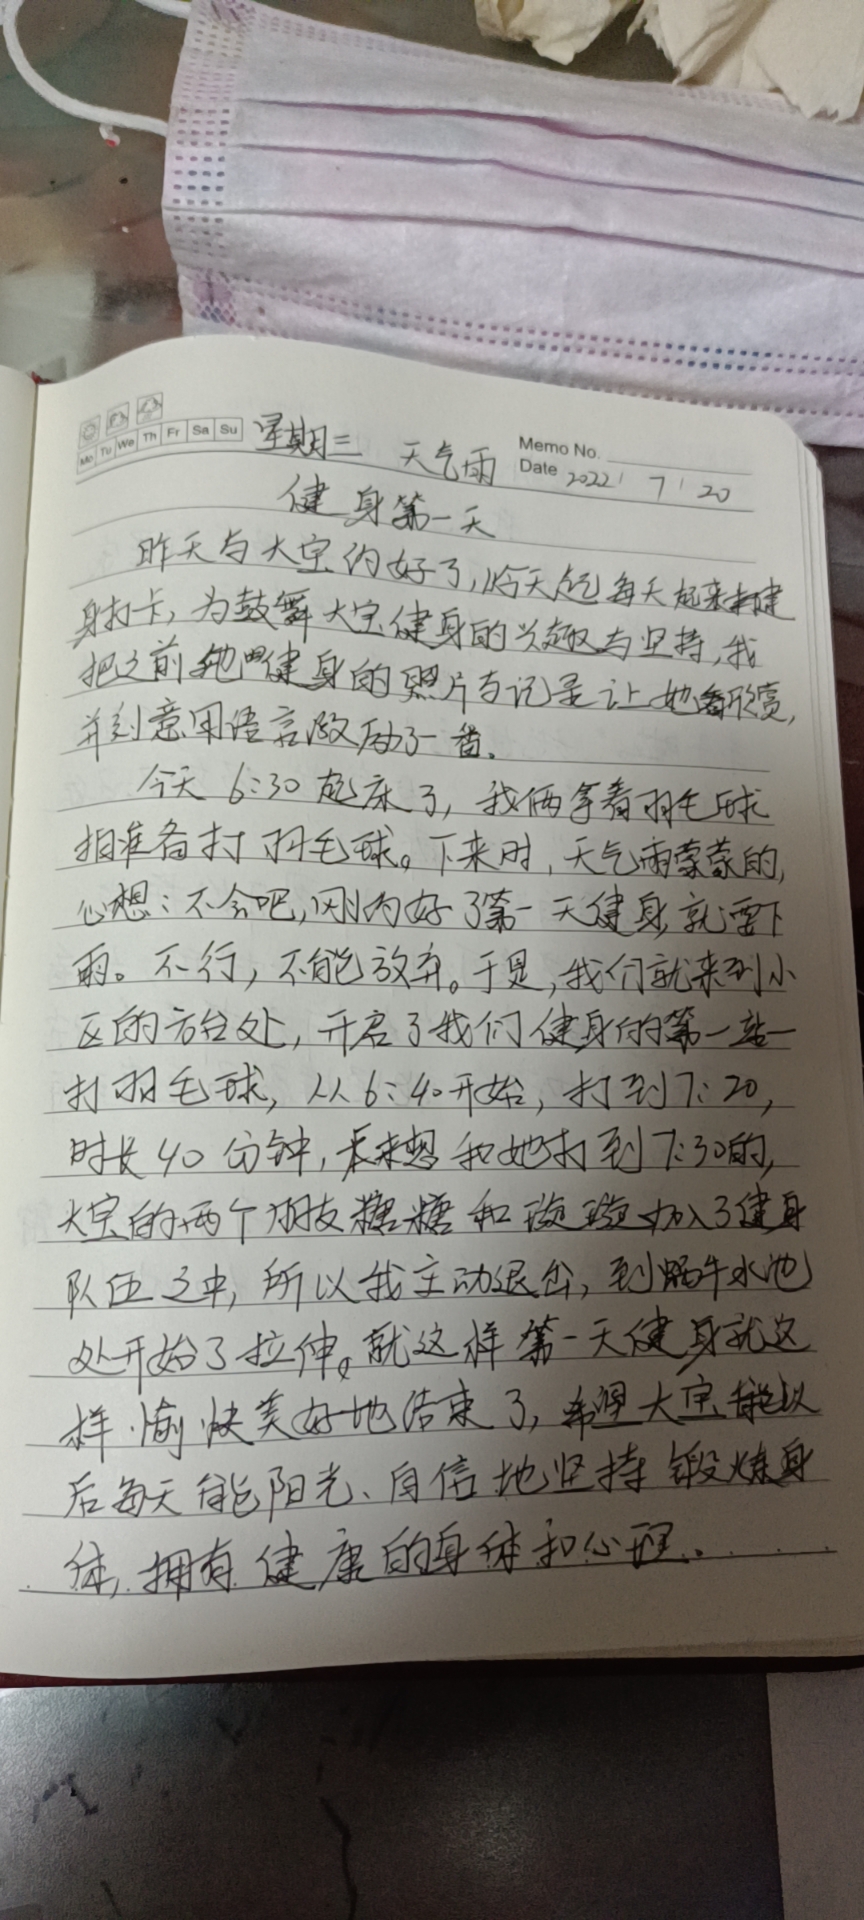 Mo Tu We Th Fr Sa Su
星期三 天气雨
Memo No.
Date 2022 / 7 / 20
健身第一天
昨天与大宝约好了,今天起每天起来健
身打卡,为鼓舞大宝健身的兴趣与坚持,我
把之前她健身的照片与记录让她看欣赏,
并刻意用语言激励了一番。
今天6:30起床了,我俩拿着羽毛球
拍准备打羽毛球。下来时,天气雨蒙蒙的,
心想:不会吧,刚约好了第一天健身,就要下
雨。不行,不能放弃。于是,我们就来到小
区的方台处,开启了我们健身的第一站—
打羽毛球,从6:40开始,打到7:20,
时长40分钟,本来想和她打到7:30的,
大宝的两个朋友糖糖和璇璇加入了健身
队伍之中,所以我主动退出,到蜗牛水池
处开始了拉伸。就这样第一天健身就这
样愉快美好地结束了,希望大宝能以
后每天能阳光、自信地坚持锻炼身
体,拥有健康的身体和心理。